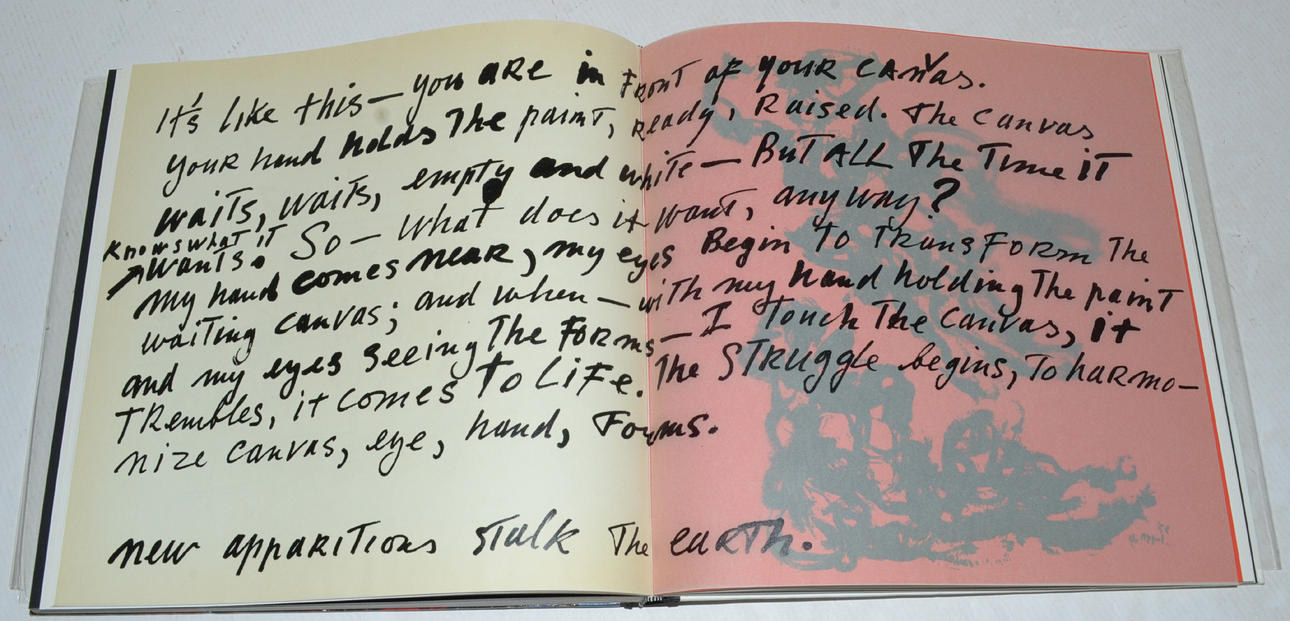 It's like this — you are in front of your canvas.
Your hand holds The paint, ready, Raised. The canvas
waits, waits, empty and white — But ALL The Time iT
Knows what iT
wants. So — what does it want, anyway?
My hand comes near, my eyes Begin To Transform The
waiting canvas; and when — with my hand holding The paint
and my eyes seeing The Forms — I Touch The canvas, it
Trembles, it comes To Life. The STruggle begins, To harmo-
nize canvas, eye, hand, Forms.
new appariTions sTalk The earTh.